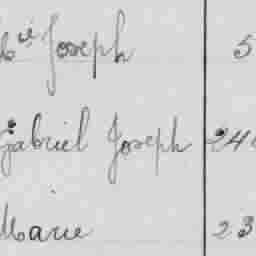 Mie Joseph 5
Gabriel Joseph 24
Marie 23